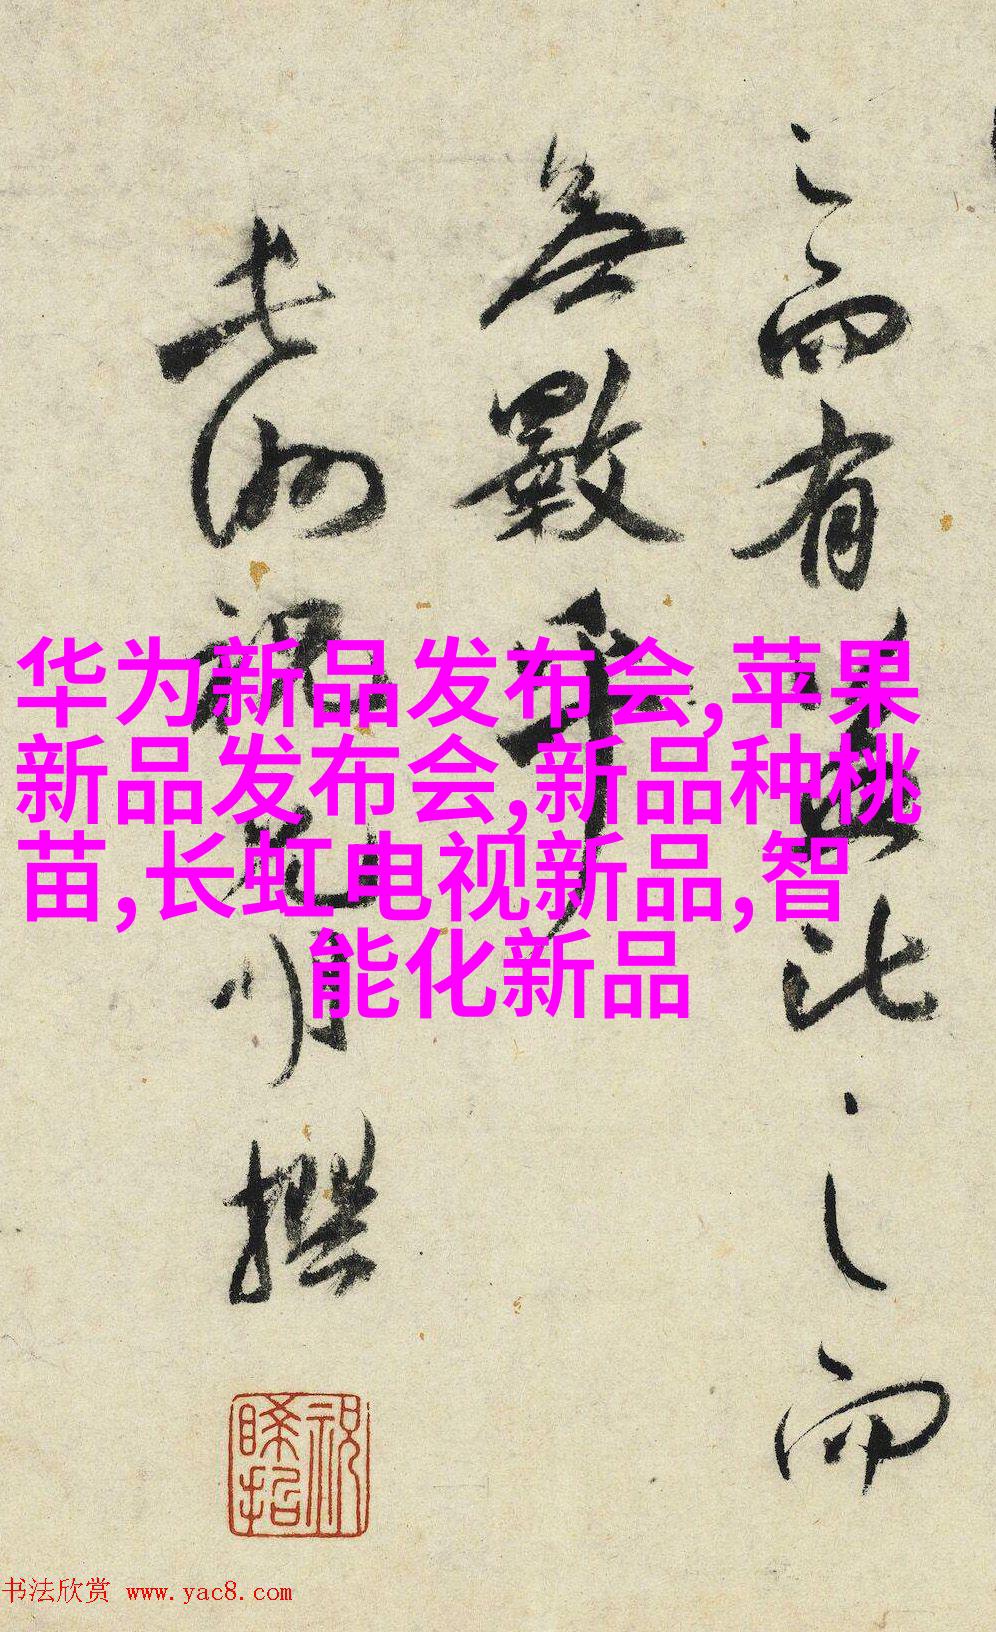 之而有此之而
長洲祝允明撰
华为新品发布会,苹果
新品发布会,新品种桃
苗,长虹电视新品,智
能化新品
书法欣赏 www.yac8.com